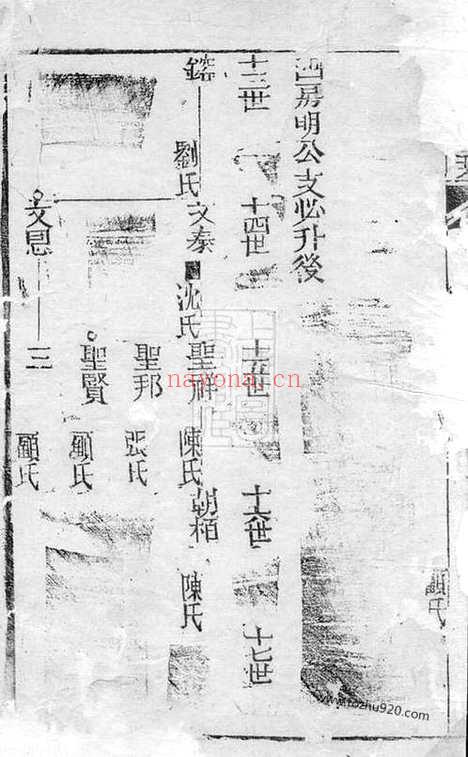 顧氏
西房明公支必升後
十三世 十四世 十五世 十六世 十七世
劉氏 文泰 沈氏 聖 陳氏 朝栢 陳氏
聖邦 張氏
聖賢 顧氏
文恩 三 顧氏
nayona.cn
www.fozhu920.com